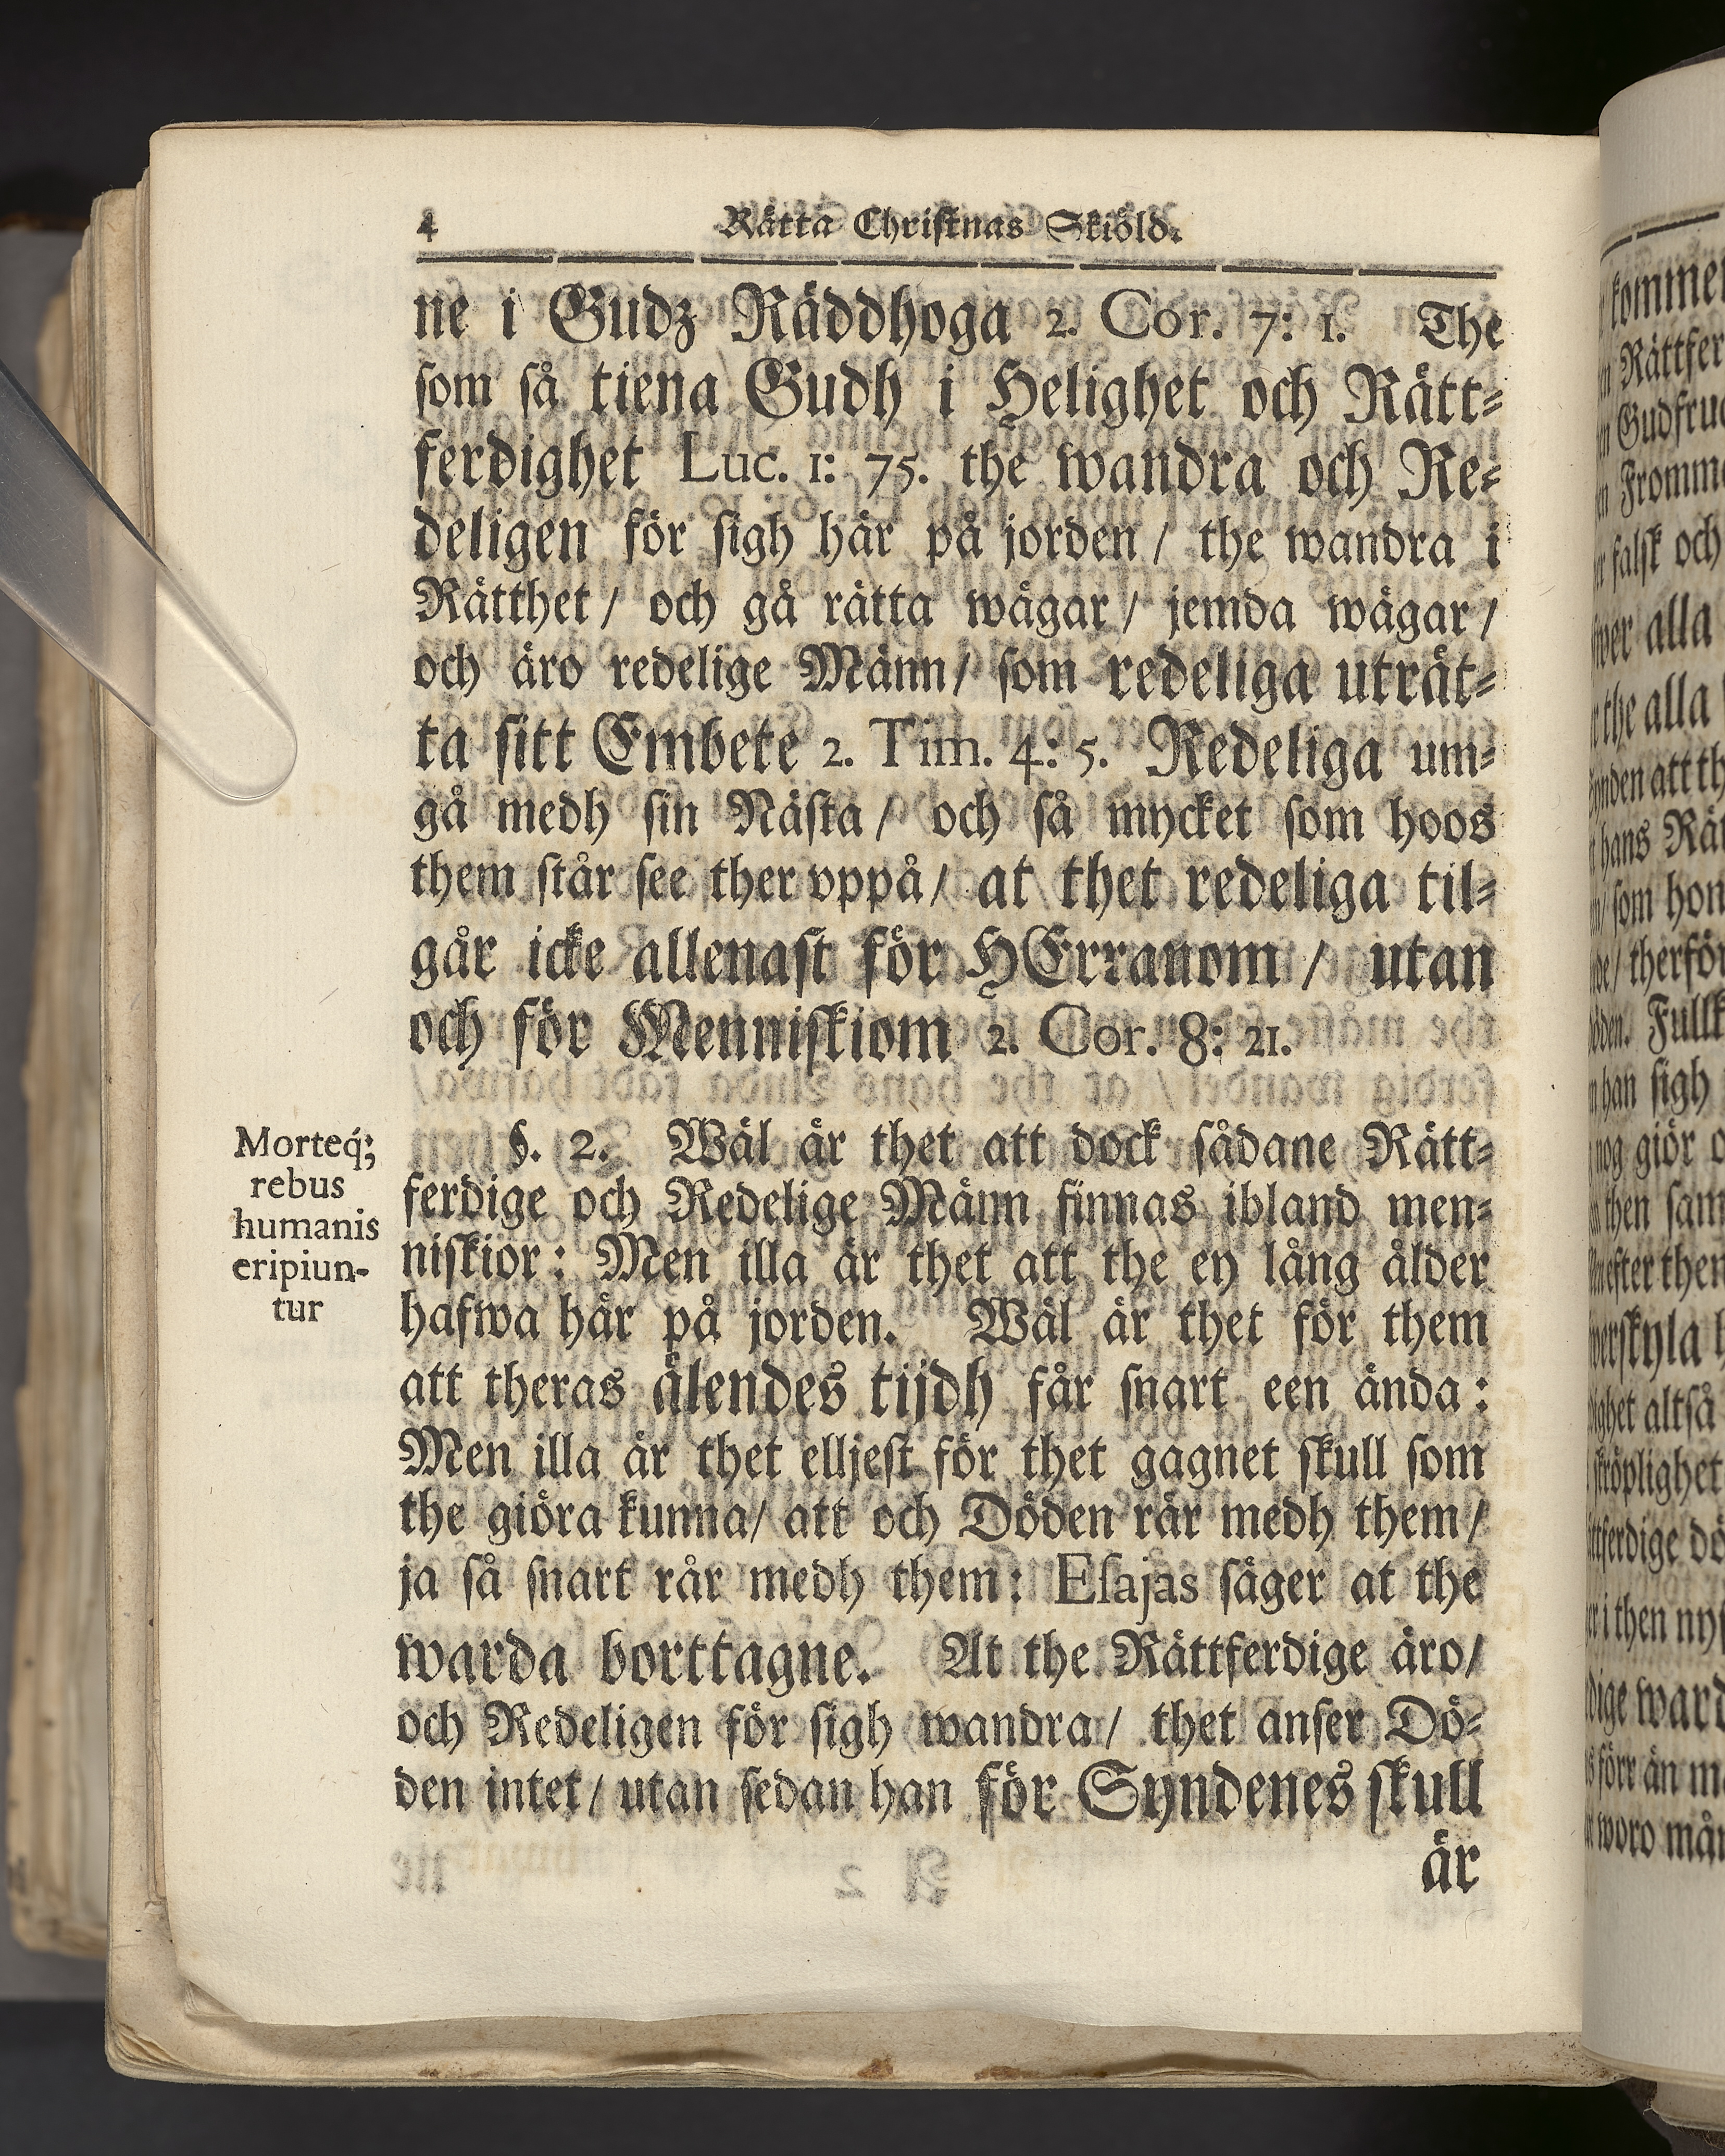 4 Rätta Christnas Skiöld.
ne i Gudz Räddhoga 2. Cor. 7: 1. The
som så tiena Gudh i Helighet och Rätt-
ferdighet Luc. 1: 75. the wandra och Re-
deligen för sigh här på jorden / the wandra i
Rätthet / och gå rätta wägar / jemda wägar /
och äro redelige Männ / som redeliga uträt-
ta sitt Embete 2. Tim. 4: 5. Redeliga um-
gå medh sin Nästa / och så mycket som hoos
them står see ther vppå / at thet redeliga til-
går icke allenast för HErranom / utan
och för Menniskiom 2. Cor. 8: 21.
Morteq;
rebus
humanis
eripiun-
tur
§. 2. Wäl är thet att dock sådane Rätt-
ferdige och Redelige Männ finnas ibland men-
niskior: Men illa är thet att the ey lång ålder
hafwa här på jorden. Wäl är thet för them
att theras älendes tijdh får snart een ända:
Men illa är thet elljest för thet gagnet skull som
the giöra kunna / att och Döden rår medh them /
ja så snart rår medh them: Esajas säger at the
warda borttagne. At the Rättferdige äro /
och Redeligen för sigh wandra / thet anser Dö-
den intet / utan sedan han för Syndenes skull
är
kommer
Rättfer
Gudfruc
Fromme
falsk och
alla
the alla
att th
hans Rät
som hon
therför
Fullk
han sigh
nog giör
then sam
efter then
altså
i then nyt
förr än m
woro mån